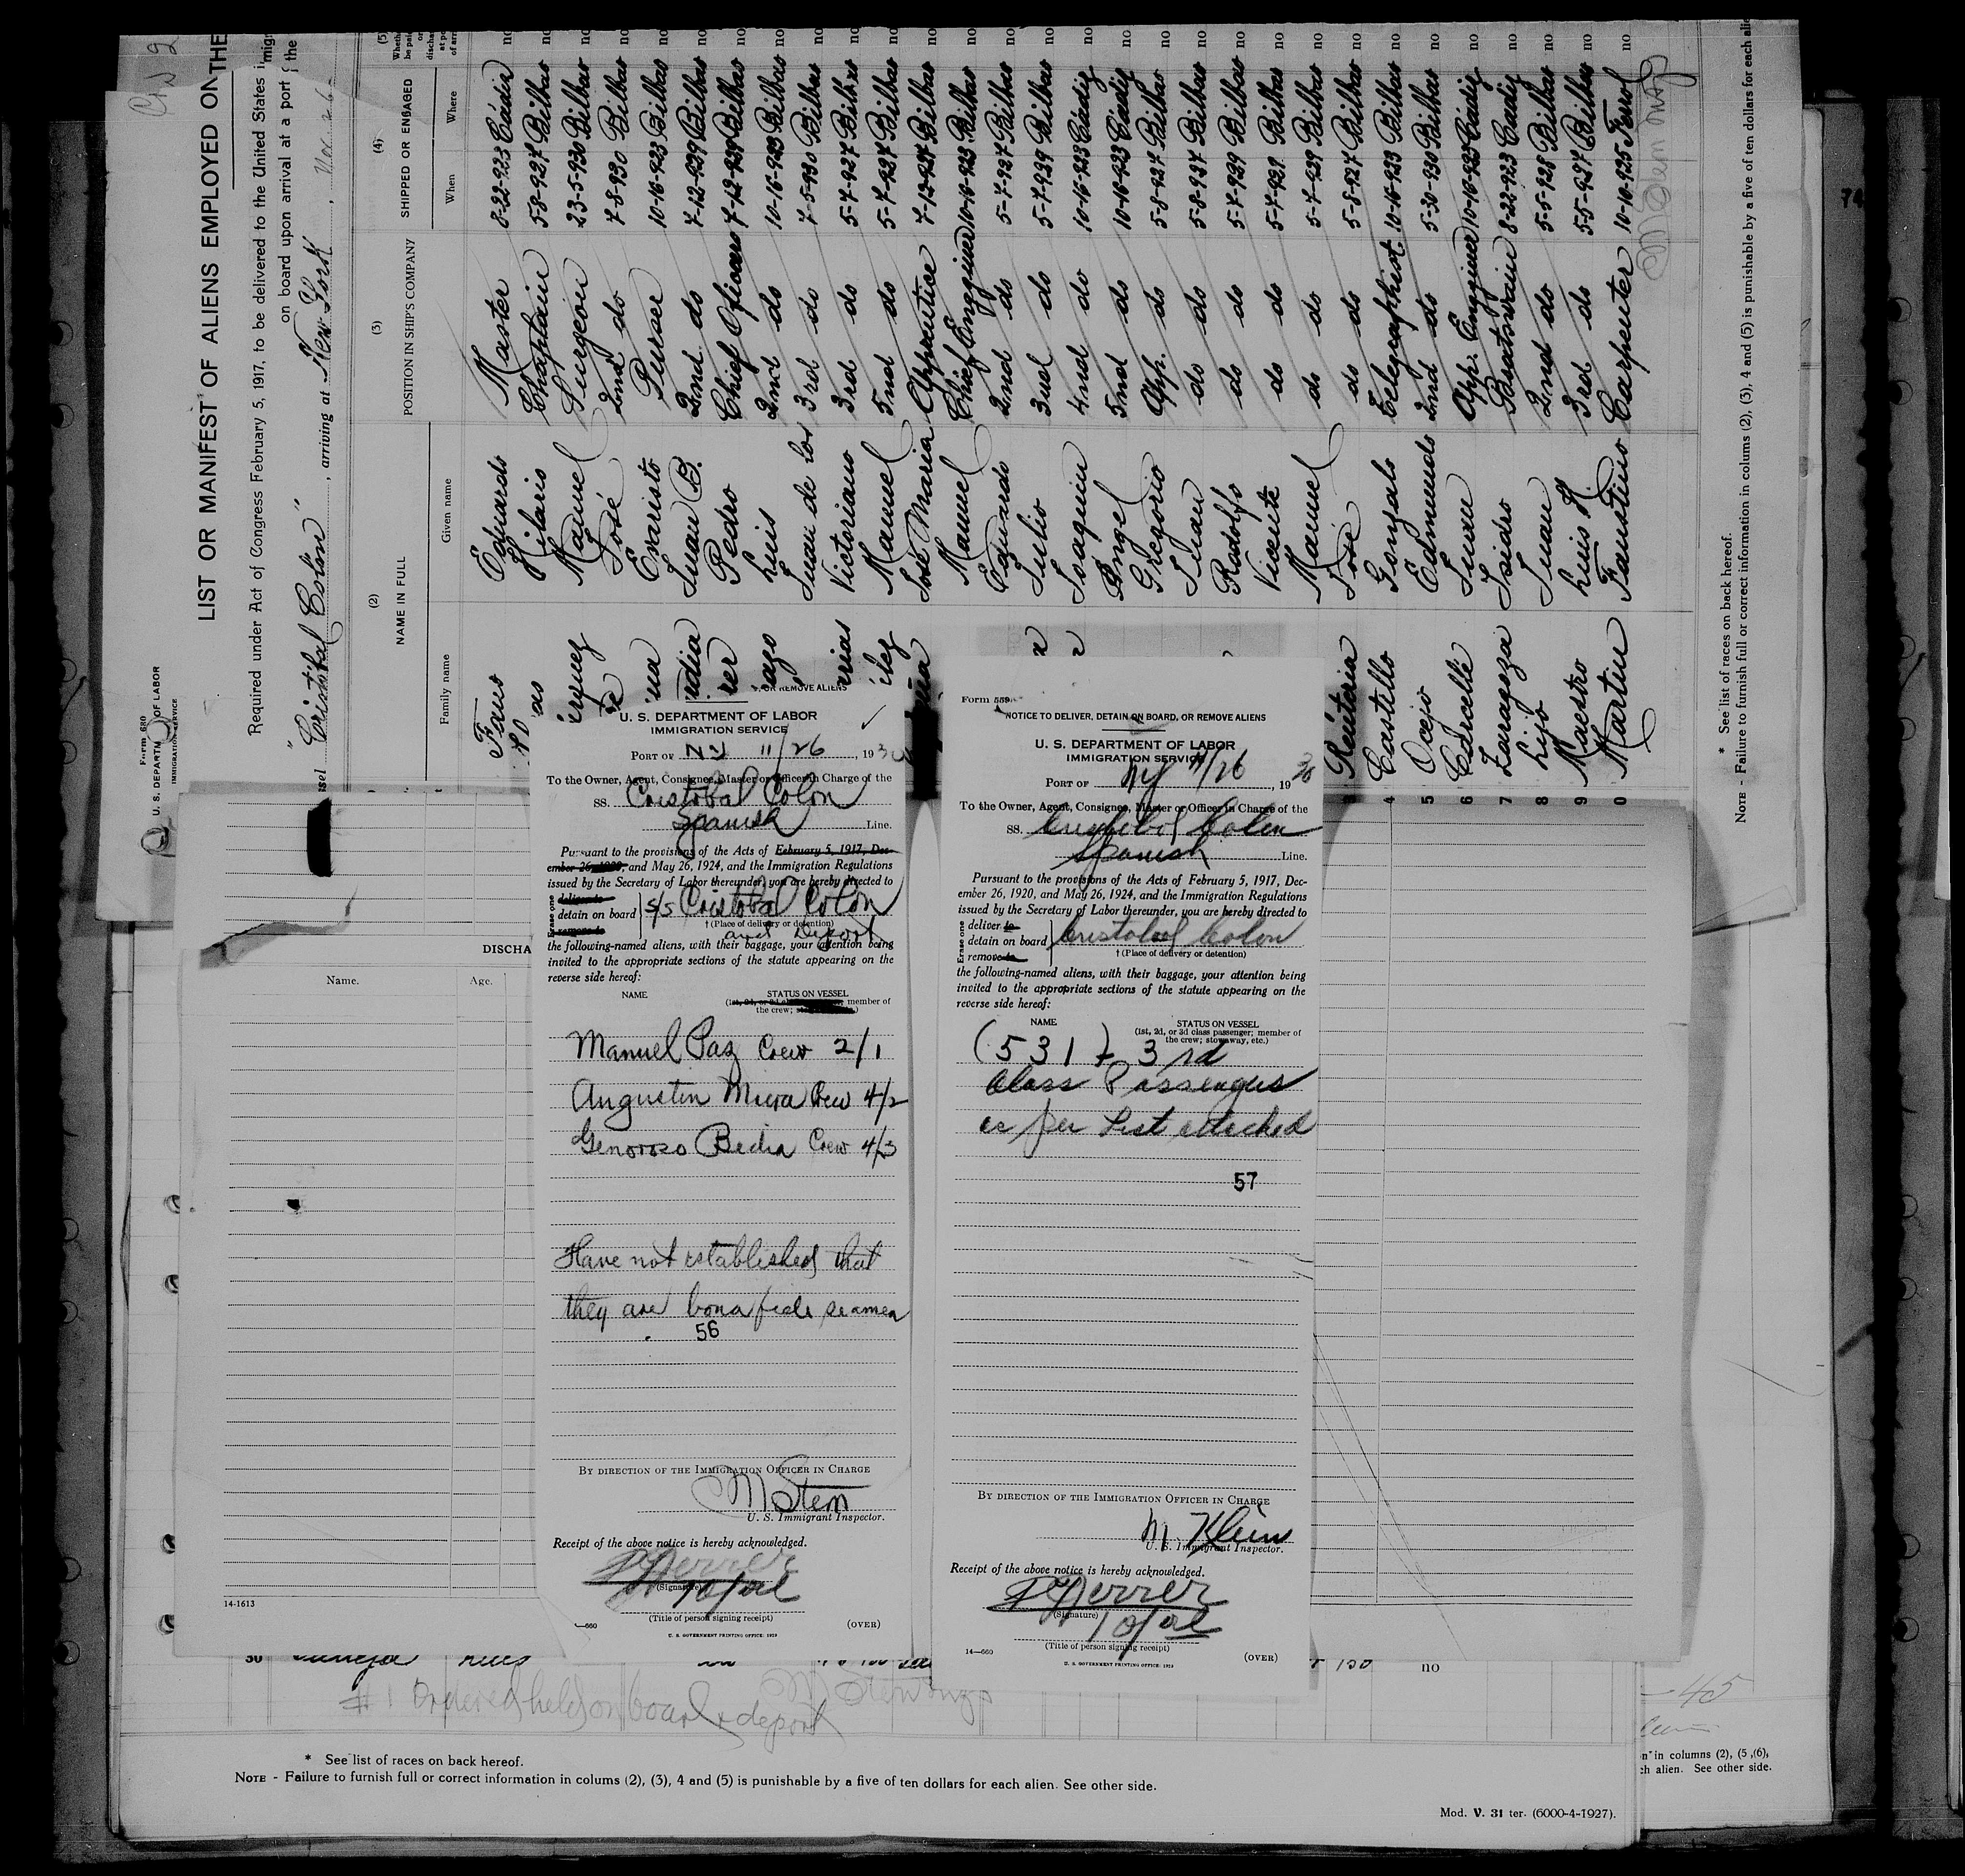 Form 680
U. S. DEPARTMENT OF LABOR
IMMIGRATION SERVICE
LIST OR MANIFEST OF ALIENS EMPLOYED ON THE
Required under Act of Congress February 5, 1917, to be delivered to the United States
on board upon arrival at a port
"Cristobal Colon", arriving at New York, Nov 26
(2)
NAME IN FULL
Family name
Given name
(3)
POSITION IN SHIP'S COMPANY
(4)
SHIPPED OR ENGAGED
When
Where
Faus Eduardo Master 8-22-923 Cádiz no
Hilario Chaplain 5-8-927 Bilbao no
Manuel Surgeon 23-5-930 Bilbao no
José 2nd do 7-8-930 Bilbao no
Evaristo Purser 10-16-923 Bilbao no
Juan B. 2nd do 7-12-929 Bilbao no
Pedro Chief Oficers 7-12-929 Bilbao no
Luis 2nd do 10-16-923 Bilbao no
Juan de los 3rd do 7-5-930 Bilbao no
Victoriano 3rd do 5-7-927 Bilbao no
Manuel 5nd do 5-7-927 Bilbao no
José Maria Apprentice 7-12-927 Bilbao no
Manuel Chief Engginer 10-16-923 Bilbao no
Eduardo 2nd do 5-7-927 Bilbao no
Julio 3nd do 5-7-929 Bilbao no
Joaquin 4nd do 10-16-923 Cádiz no
Angel 5nd do 10-16-923 Cádiz no
Gregorio App. do 5-8-927 Bilbao no
Juan do do 5-8-927 Bilbao no
Rodolfo do do 5-7-929 Bilbao no
Vicente do do 5-7-929 Bilbao no
Manuel do do 5-7-929 Bilbao no
3 Renteria José do do 5-8-927 Bilbao no
4 Castillo Gonzalo Telegraphist 10-16-923 Bilbao no
5 Ocejo Edmundo 2nd do 5-30-930 Bilbao no
6 Carcelle Juan App. Engginer 10-16-923 Cádiz no
7 Zaragoza Isidro Boatswain 8-22-923 Cádiz no
8 Lijo Juan 2nd do 5-5-928 Bilbao no
9 Maestro Luis R. 3rd do 5-5-927 Bilbao no
0 Martin Faustino Carpenter 10-10-925 Ferrol no
M Stein insp
* See list of races on back hereof.
NOTE - Failure to furnish full or correct information in colums (2), (3), 4 and (5) is punishable by a five of ten dollars for each
DISCHA
Name.
Age.
14-1613
OR REMOVE ALIENS
U. S. DEPARTMENT OF LABOR
IMMIGRATION SERVICE
PORT OF NY 11/26, 1930
To the Owner, Agent, Consignee, Master or Officer in Charge of the
SS. Cristobal Colon
Spanish Line.
Pursuant to the provisions of the Acts of February 5, 1917, Dec-
ember 26, 1920, and May 26, 1924, and the Immigration Regulations
issued by the Secretary of Labor thereunder, you are hereby directed to
Erase one
deliver to
detain on board S/S Cristobal Colon
remove to
† (Place of delivery or detention)
and Deport
the following-named aliens, with their baggage, your attention being
invited to the appropriate sections of the statute appearing on the
reverse side hereof:
NAME
STATUS ON VESSEL
member of
the crew;
Manuel Paz Crew 2/1
Augustin Miera Crew 4/2
Genoroso Bedia Crew 4/3
Have not established that
they are bona fide seamen
56
BY DIRECTION OF THE IMMIGRATION OFFICER IN CHARGE
M Stein
U. S. Immigrant Inspector.
Receipt of the above notice is hereby acknowledged.
(Signature)
(Title of person signing receipt)
—660
(OVER)
U. S. GOVERNMENT PRINTING OFFICE: 1929
Form 559
NOTICE TO DELIVER, DETAIN ON BOARD, OR REMOVE ALIENS
U. S. DEPARTMENT OF LABOR
IMMIGRATION SERVICE
PORT OF NY 11/26, 1930
To the Owner, Agent, Consignee, Master or Officer in Charge of the
SS. Cristobal Colon
Spanish Line.
Pursuant to the provisions of the Acts of February 5, 1917, Dec-
ember 26, 1920, and May 26, 1924, and the Immigration Regulations
issued by the Secretary of Labor thereunder, you are hereby directed to
Erase one
deliver to
detain on board Cristobal Colon
remove to
† (Place of delivery or detention)
the following-named aliens, with their baggage, your attention being
invited to the appropriate sections of the statute appearing on the
reverse side hereof:
NAME
STATUS ON VESSEL
(1st, 2d, or 3d class passenger; member of
the crew; stowaway, etc.)
(531) 3rd
Class Passengers
as per List attached
57
BY DIRECTION OF THE IMMIGRATION OFFICER IN CHARGE
M. Klein
U. S. Immigrant Inspector.
Receipt of the above notice is hereby acknowledged.
(Signature)
(Title of person signing receipt)
14—660
(OVER)
U. S. GOVERNMENT PRINTING OFFICE: 1929
30
no
# 1 Ordered held on board & deport M Stein insp
45
* See list of races on back hereof.
NOTE - Failure to furnish full or correct information in colums (2), (3), 4 and (5) is punishable by a five of ten dollars for each alien. See other side.
Mod. V. 31 ter. (6000-4-1927).
in columns (2), (5,(6),
ch alien. See other side.